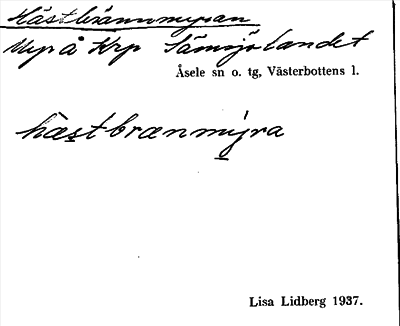 Hästbrännmyran
Myr å Krp Sämsjölandet
Åsele sn o. tg, Västerbottens l.
hæstbrænmyra
Lisa Lidberg 1937.